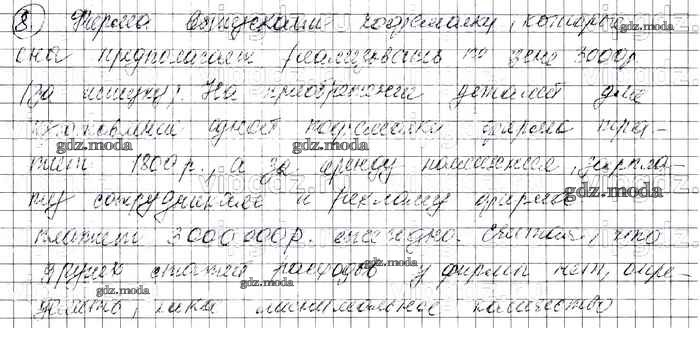 8. Фирма выпускает кофемолку, которые
она предполагает реализовать по цене 3000р
(за штуку). На приобретение деталей для
изготовления одной кофемолки фирма тра-
тит 1800 р., а за аренду помещения, зарпла-
ту сотрудников и рекламу фирма
платит 3 000 000 р. ежегодно. Считая, что
других статей расходов у фирмы нет, опре-
делить, какое минимальное количество
gdz.moda
gdz.moda
gdz.moda
gdz.moda
gdz.moda
gdz.moda